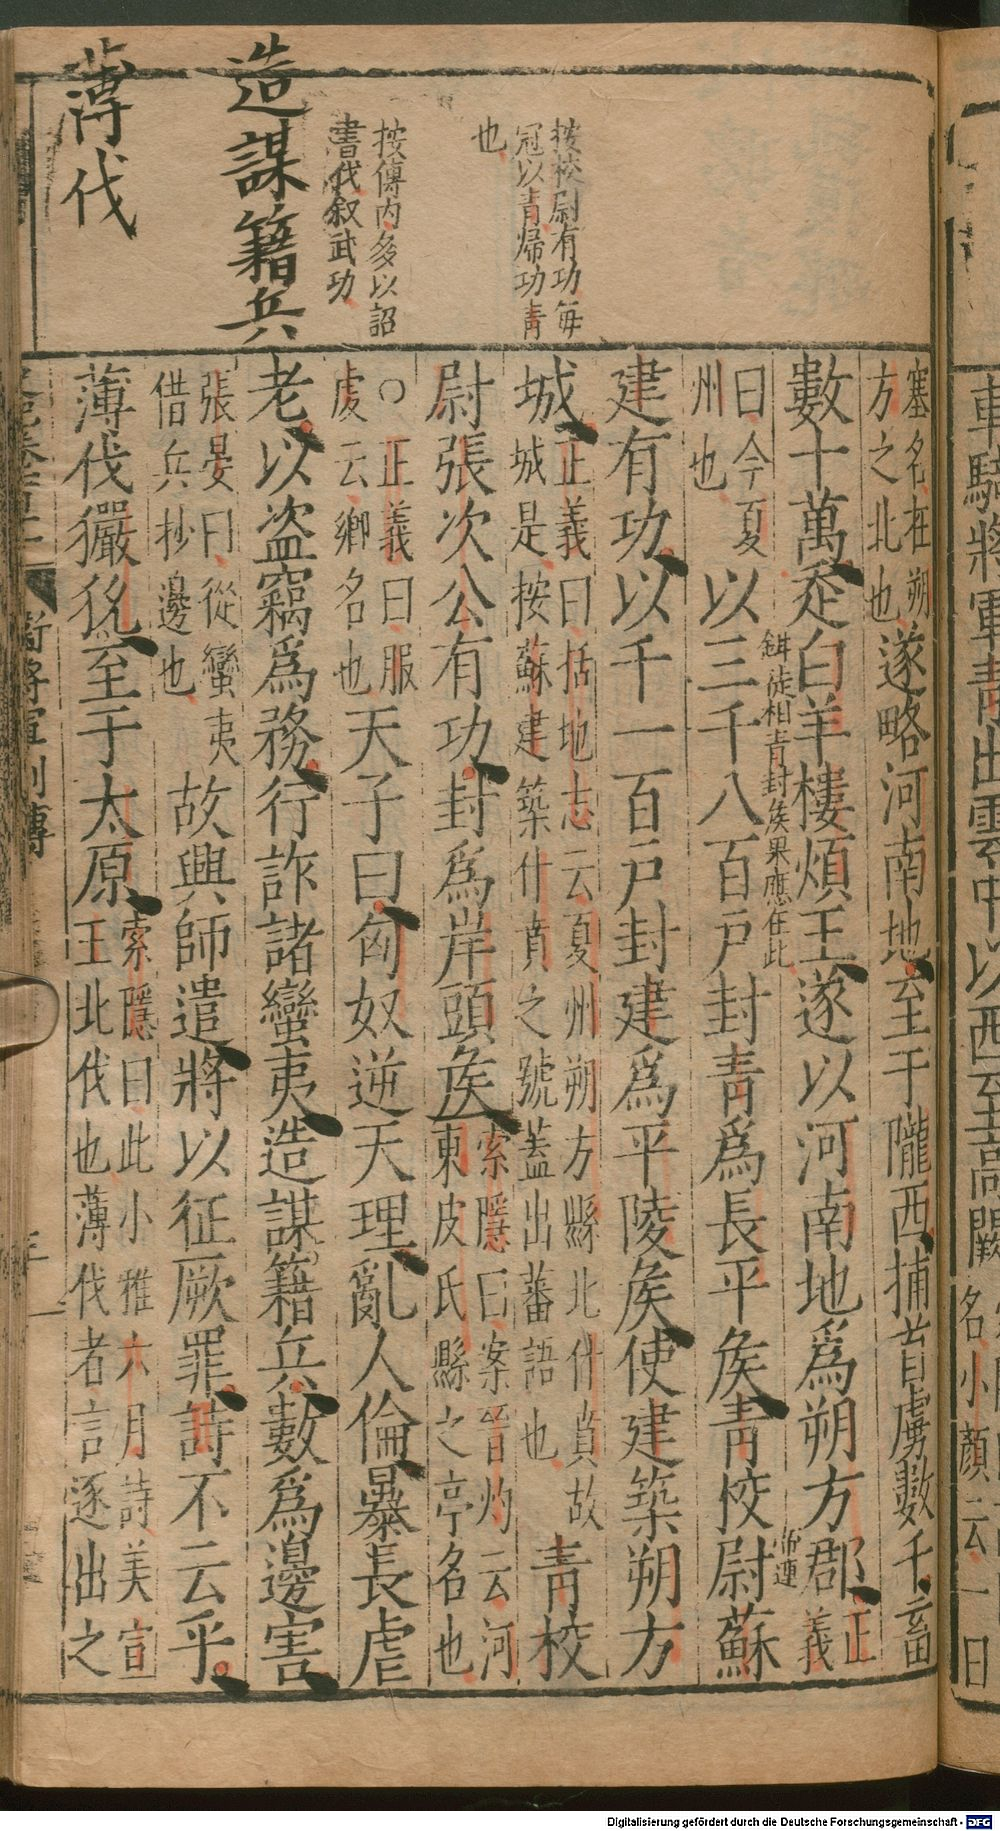 按校尉有功每
冠以青帰功青
也
按傳内多以詔
書代叙武功
造謀籍兵
薄伐
塞名在朔
方之北也
遂略河南地至于隴西捕首虜數千畜
數十萬走白羊樓煩王遂以河南地爲朔方郡
正
義
曰今夏
州也
以三千八百户封青爲長平侯青校尉蘇
鉗徒相青封侯果應在此
建有功以千一百户封建爲平陵侯使建築朔方
城
正義曰括地志云夏州朔方縣北什賁故
城是按蘇建築什賁之號蓋出蕃語也
青校
尉張次公有功封爲岸頭侯
索隱曰案晉灼云河
東皮氏縣之亭名也
○正義曰服
虔云鄉名也
天子曰匈奴逆天理亂人倫暴長虐
老以盜竊爲務行詐諸蠻夷造謀籍兵數爲邊害
張晏曰從蠻夷
借兵抄邊也
故興師遣將以征厥罪詩不云乎
薄伐玁狁至于太原
索隱曰此小雅六月詩美宣
王北伐也薄伐者言逐出之
衛將軍列傳
車騎將軍青出雲中以西至高闕
名小顏云一曰
Digitalisierung gefördert durch die Deutsche Forschungsgemeinschaft - DFG